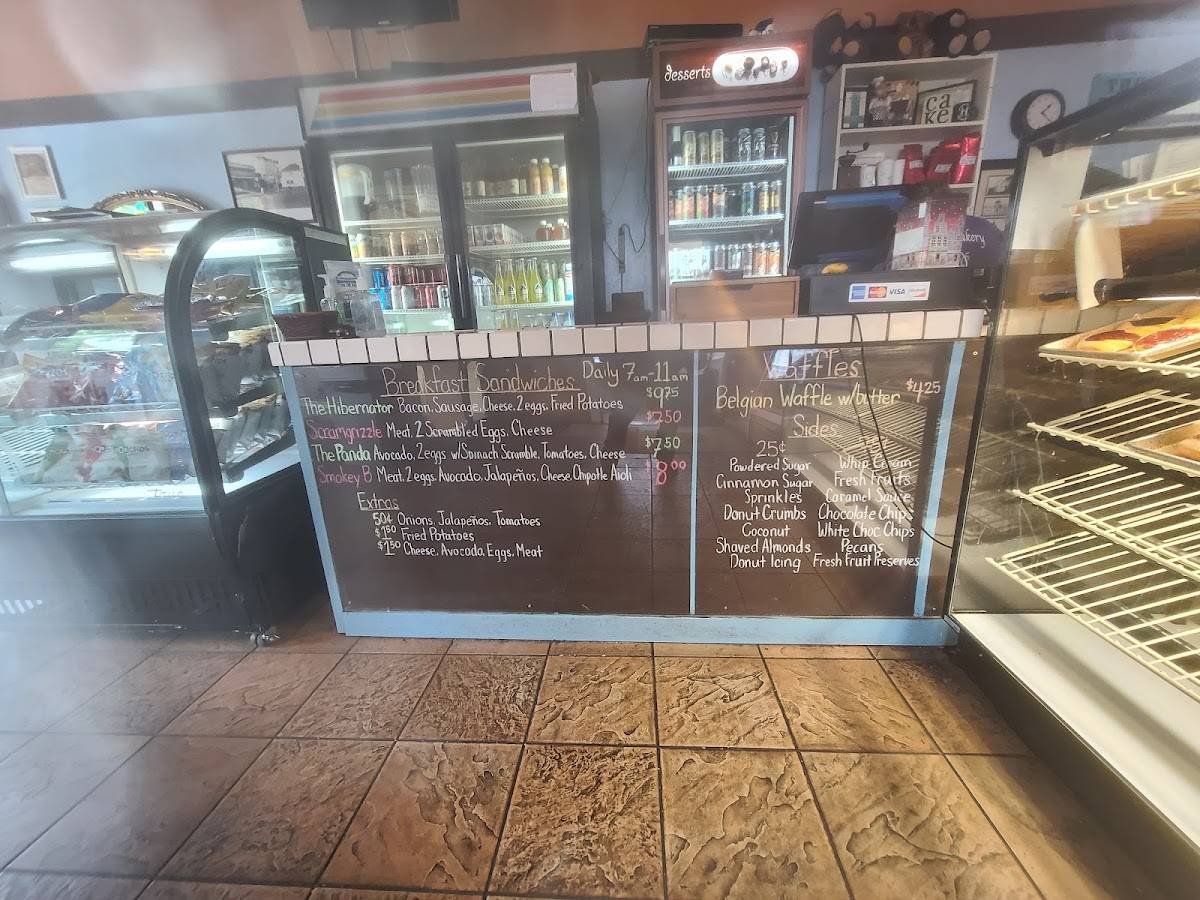 desserts
ca
ke
akery
VISA
Breakfast Sandwiches Daily 7am-11am
The Hibernator Bacon, Sausage, Cheese, 2 eggs, Fried Potatoes $9.75
Scramgrizzle Meat, 2 Scrambled Eggs, Cheese $7.50
The Panda Avocado, 2 eggs w/Spinach Scramble, Tomatoes, Cheese $7.50
Smokey B Meat, 2 eggs, Avocado, Jalapeños, Cheese, Chipotle Aioli $8.00
Extras
50¢ Onions, Jalapeños, Tomatoes
$1.50 Fried Potatoes
$1.50 Cheese, Avocado, Eggs, Meat
Waffles
Belgian Waffle w/butter $4.25
Sides
25¢
Powdered Sugar Whip Cream
Cinnamon Sugar Fresh Fruits
Sprinkles Caramel Sauce
Donut Crumbs Chocolate Chips
Coconut White Choc Chips
Shaved Almonds Pecans
Donut Icing Fresh Fruit Preserves